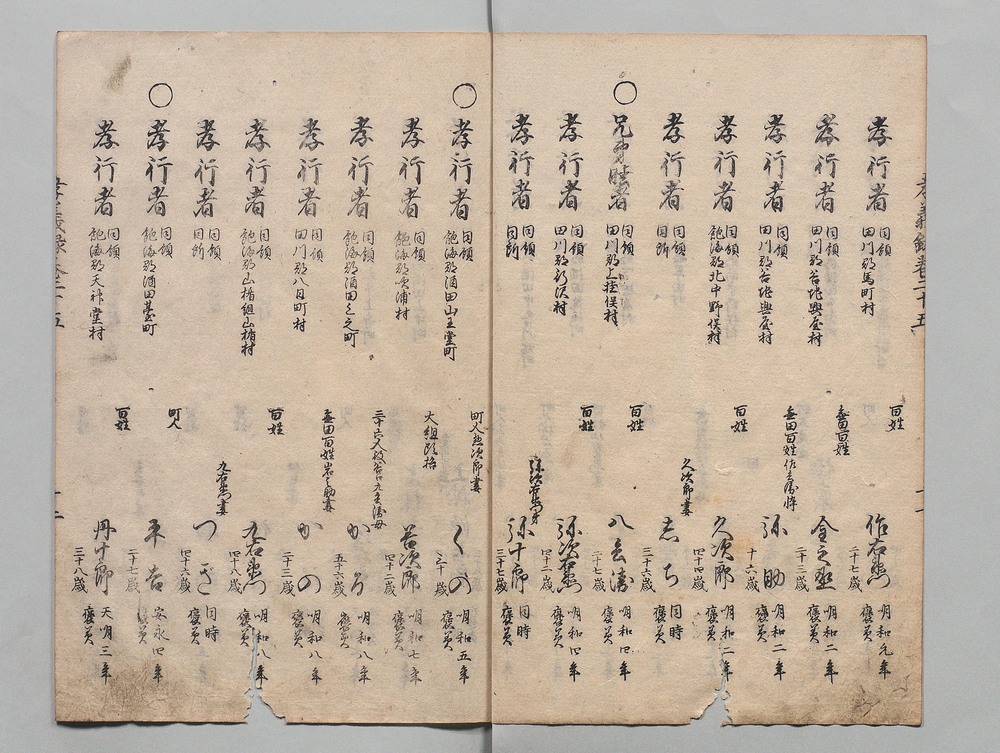 孝行者 同領 田川郡馬町村 百姓 作右衛門 二十七歳 明和元年 褒美
孝行者 同領 田川郡谷地興屋村 無田百姓 金之丞 二十三歳 明和二年 褒美
孝行者 同領 田川郡谷地興屋村 無田百姓 弥助 十六歳 明和二年 褒美
孝行者 同領 飽海郡北中野俣村 百姓 久次郎 四十四歳 明和二年 褒美
孝行者 同領 同所 久次郎妻 三十六歳 同時 褒美
○兄弟睦者 同領 田川郡上 俣村 百姓 八 二十七歳 明和四年 褒美
孝行者 同領 田川郡 沢村 百姓 弥次右衛門 四十二歳 明和四年 褒美
孝行者 同領 同所 弥次右衛門弟 弥十郎 三十七歳 同時 褒美
○孝行者 同領 飽海郡酒田山王堂町 町人 次郎妻 くの 明和五年 褒美
孝行者 同領 飽海郡吹浦村 大組頭格 次郎 四十二歳 明和七年 褒美
孝行者 同領 飽海郡酒田 之町 三十六人 母 五十六歳 明和八年 褒美
孝行者 同領 田川郡八日町村 無田百姓岩之助妻 かの 二十三歳 明和八年 褒美
孝行者 同領 飽海郡山楯組山楯村 百姓 九右衛門 四十八歳 明和八年 褒美
孝行者 同領 同所 九右衛門妻 つぎ 四十六歳 同時 褒美
○孝行者 同領 飽海郡酒田 町 町人 平吉 二十七歳 安永四年 褒美
孝行者 同領 飽海郡天神堂村 百姓 丹十郎 三十八歳 天明三年 褒美